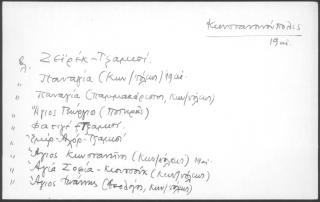 Κωνσταντινούπολις
19 αι.
βλ. Ζεϊρέκ-Τζαμισί.
" Παναγία (Κων/πόλεως) 19 αι.
" Παναγία (Παμμακάριστος, Κων/πόλεως)
" Άγιος Γεώργιος (Ποτηράς)
" Φατιχέ-Τζαμισί.
" Εμίρ-Αχόρ-Τζαμισί
" Άγιος Κωνσταντίνος (Κων/πόλεως) 19 αι.
" Αγία Σοφία - Κιουτσούκ (Κων/πόλεως)
" Άγιος Ιωάννης (Κων/πόλεως)